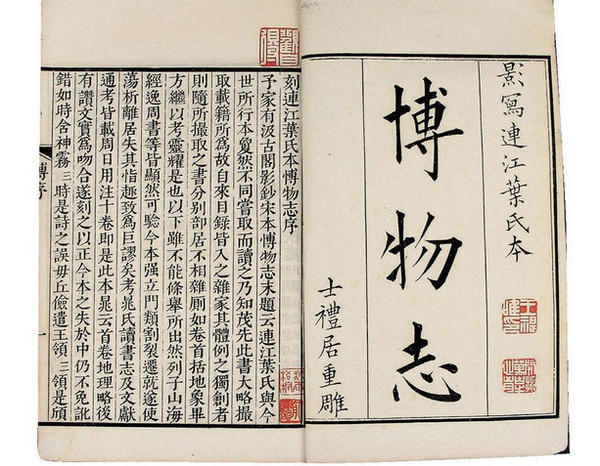 影寫連江葉氏本
博物志
士禮居重雕
刻連江葉氏本博物志序
予家有汲古閣影鈔宋本博物志末題云連江葉氏與今
世所行本敻然不同嘗取而讀之乃知茂先此書大略撮
取載籍所為故自來目錄皆入之雜家其體例之獨創者
則隨所撮取之書分别部居不相雜廁如卷首括地象畢
方繼以考靈耀是也以下雖不能條舉所出然列子山海
經逸周書等皆顯然可驗今本强立門類割裂遷就遂使
蕩析離居失其指趣致為巨謬矣考晁氏讀書志及文獻
通考皆載周日用注十卷即是此本晁云首卷地理略後
有讚文實為吻合遂刻之以正今本之失於中仍不免訛
錯如時含神霧三時是詩之誤毋丘儉遣王領三領是頎
博序
一